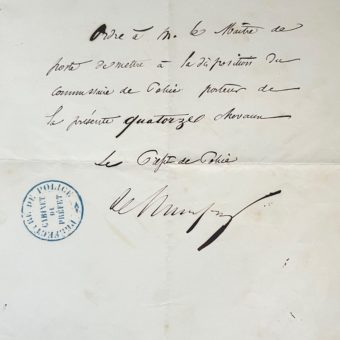 Ordre à M. le Maître de
poste de mettre à la disposition du
commissaire de Police porteur de
la présente quatorze chevaux
Le Préfet de Police
PRÉFECTURE DE POLICE
CABINET
DU
PRÉFET